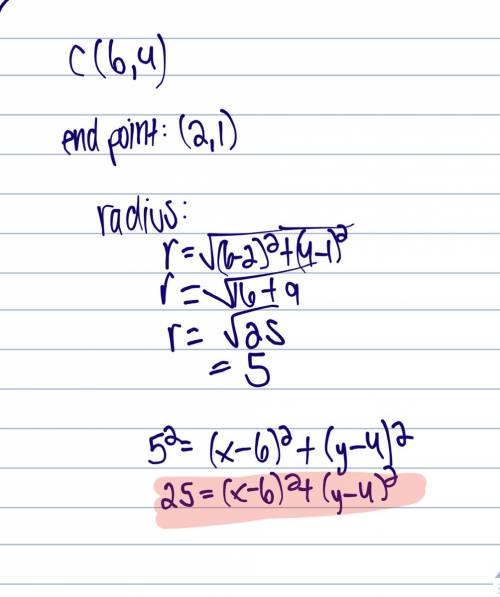 C(6,4)
end point: (2,1)
radius:
r=√(6-2)²+(4-1)²
r=√16+9
r=√25
=5
5²=(x-6)²+(y-4)²
25=(x-6)²+(y-4)²